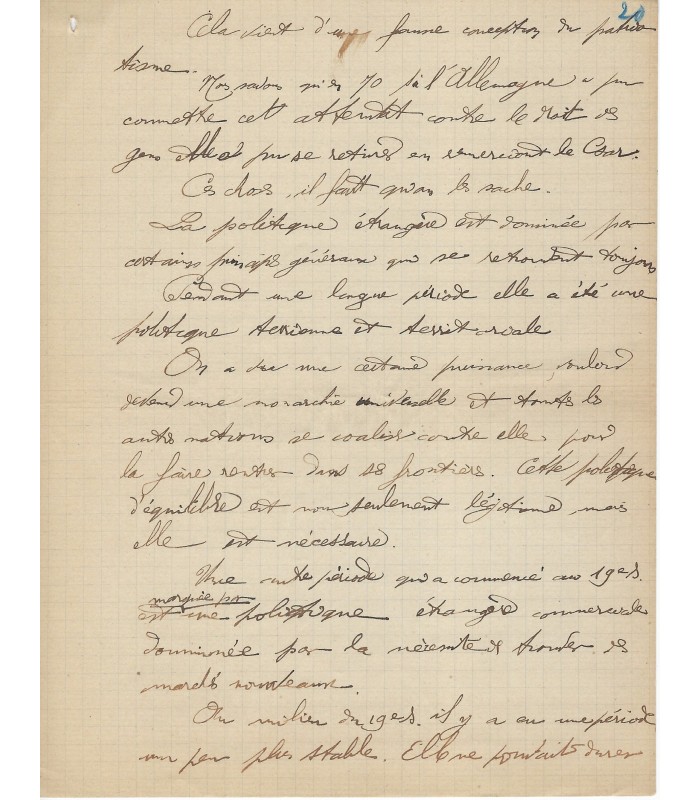 20
Cela vient d'une fausse conception du patrio
tisme.
Nos savons qu'en 70 si l'Allemagne a pu
commettre cet attentat contre le droit des
gens elle a pu se retirer en remerciant le Csar.
Ces choses, il faut qu'on les sache.
La politique étrangère est dominée par
certains principes généraux qui se retrouvent toujours
Pendant une longue période elle a été une
politique terrienne et territoriale
On a vu une certaine puissance, vouloir
une monarchie universelle et toutes les
autres nations se coaliser contre elle, pour
la faire rentrer dans ses frontières. Cette politique
d'équilibre est non seulement légitime mais
elle est nécessaire.
Une autre période qui a commencé au 19e s.
marquée par
est une politique étrangère commerciale
dominée par la nécessité de trouver des
marchés nouveaux.
Au milieu du 19e s. il y a eu une période
un peu plus stable. Elle ne pouvait durer